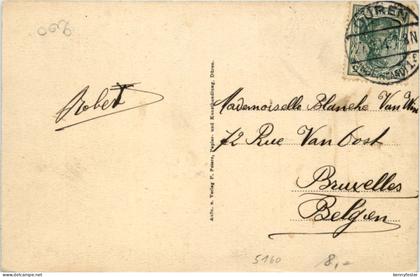 DÜREN
Robert
Mademoiselle Blanche Van
72 Rue Van Oost
Bruxelles
Belgien
Aufn. u. Verlag P. Peters, Papier- und Kunsthandlung, Düren.
5160
8,-
bennyfester